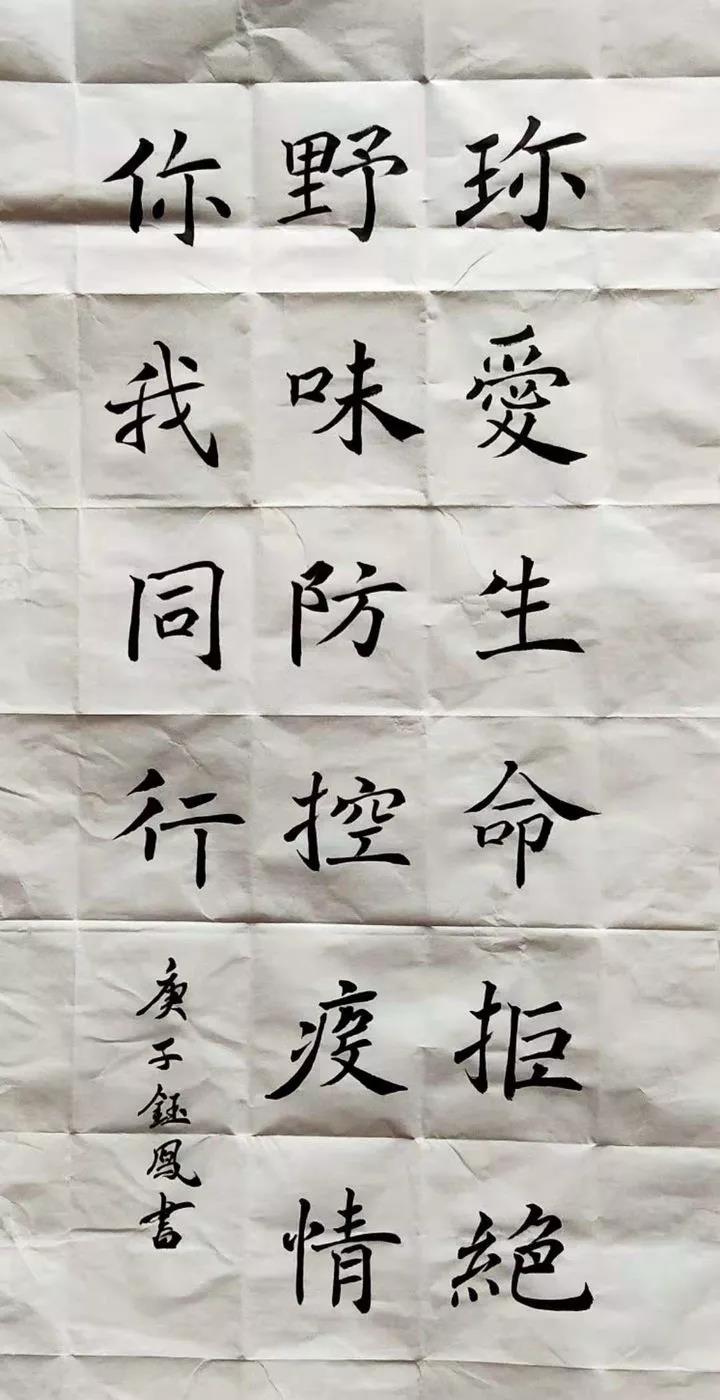 珎愛生命拒絶
野味防控疫情
你我同行
庚子鈺鳳書